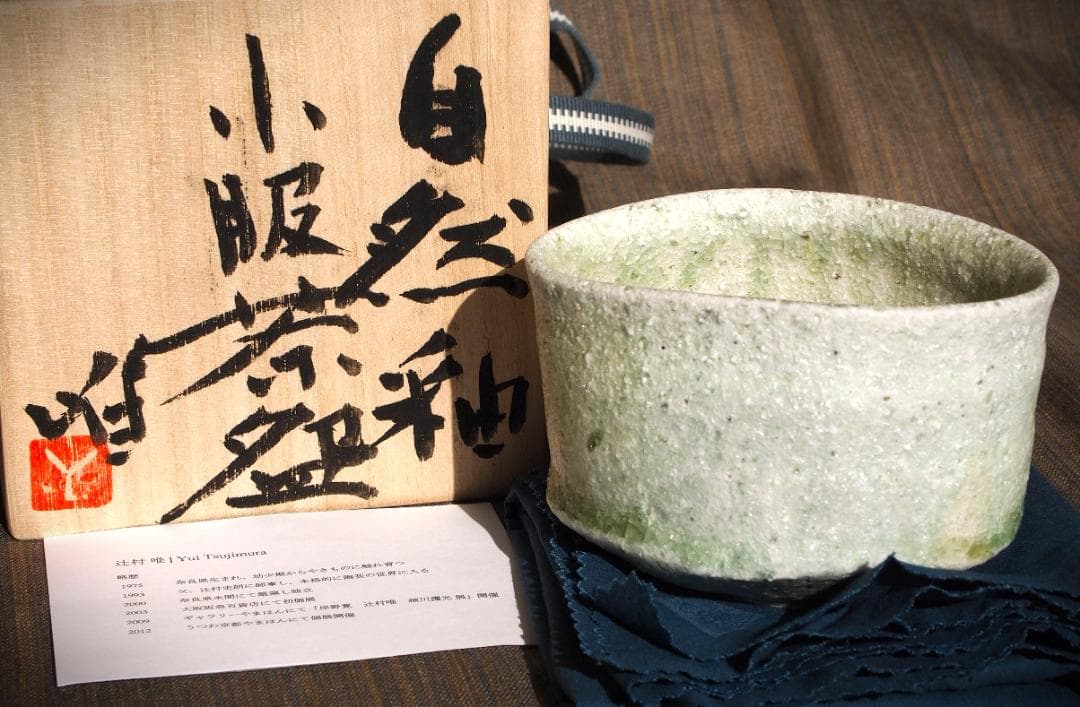 自然釉
小服茶盌
唯
Y
辻村 唯 | Yui Tsujimura
略歴
1975 奈良県生まれ。幼少期からやきものに触れ育つ
1993 父、辻村史朗に師事し、本格的に陶芸の世界に入る
2000 奈良県水間にて築窯し独立
2003 大阪阪急百貨店にて初個展
2009 ギャラリーやまほんにて「岸野寛 辻村唯 細川護光 展」開催
2012 うつわ京都やまほんにて個展開催